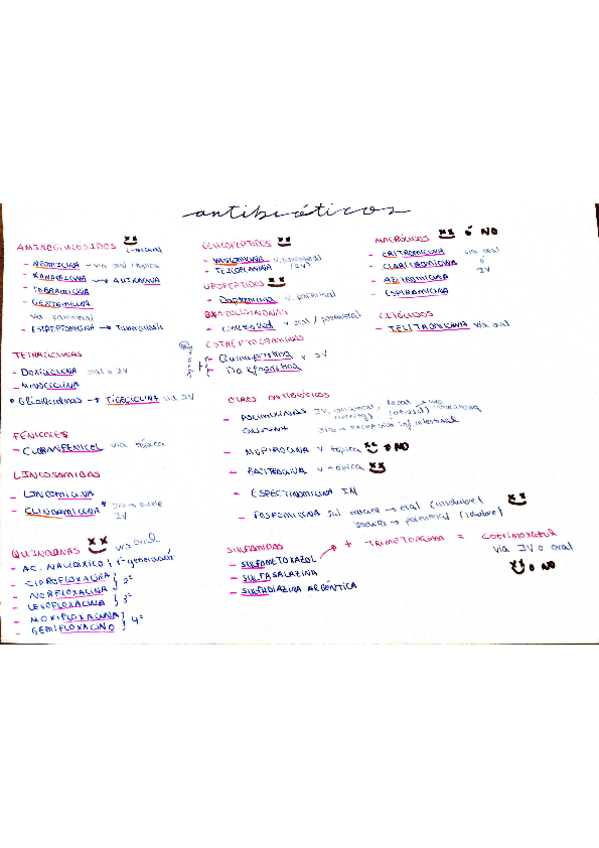 antibióticos
AMINOGLUCÓSIDOS
- NEOMICINA → via oral / tópica
- KANAMICINA → AMIKACINA
- TOBRAMICINA
- GENTAMICINA
via parenteral
- ESTREPTOMICINA → Tuberculosis
TETRACICLINAS
- DOXICICLINA oral o IV
- MINOCICLINA
Glicilciclinas → TIGECICLINA via IV
FÉNICOLES
- CLORANFENICOL via tópica
LINCOSAMIDAS
- LINCOMICINA
- CLINDAMICINA
IV
QUINOLONAS via oral
- AC. NALIDIXICO } 1ª generación
- CIPROFLOXACINA
- NORFLOXACINA } 2ª
- LEVOFLOXACINA } 3ª
- MOXIFLOXACINA
- GEMIFLOXACINO } 4ª
GLUCOPEPTIDOS
- VANCOMICINA v. parenteral
- TEICOPLANINA (IV)
LIPOPEPTIDOS
- Daptomicina v. parenteral
OXAZOLIDINONAS
- Linezolid v. oral / parenteral
ESTREPTOGRAMINAS
- Quinupristina v IV
- Dalfopristina
MACRÓLIDOS ó NO
- ERITROMICINA via oral
- CLARITROMICINA ó
- AZITROMICINA IV
- ESPIRAMICINA
CETÓLIDOS
- TELITROMICINA via oral
OTROS ANTIBIÓTICOS
- POLIMIXINAS IV,
- MUPIROCINA v tópica o NO
- BACITRACINA v tópica
- ESPECTINOMICINA IM
- FOSFOMICINA sal cálcica → oral (insoluble)
sódica → parenteral (soluble)
SULFAMIDAS
- SULFAMETOXAZOL + TRIMETOPRIMA = cotrimoxazol
via IV o oral
- SULFASALAZINA o NO
- SULFADIAZINA ARGÉNTICA